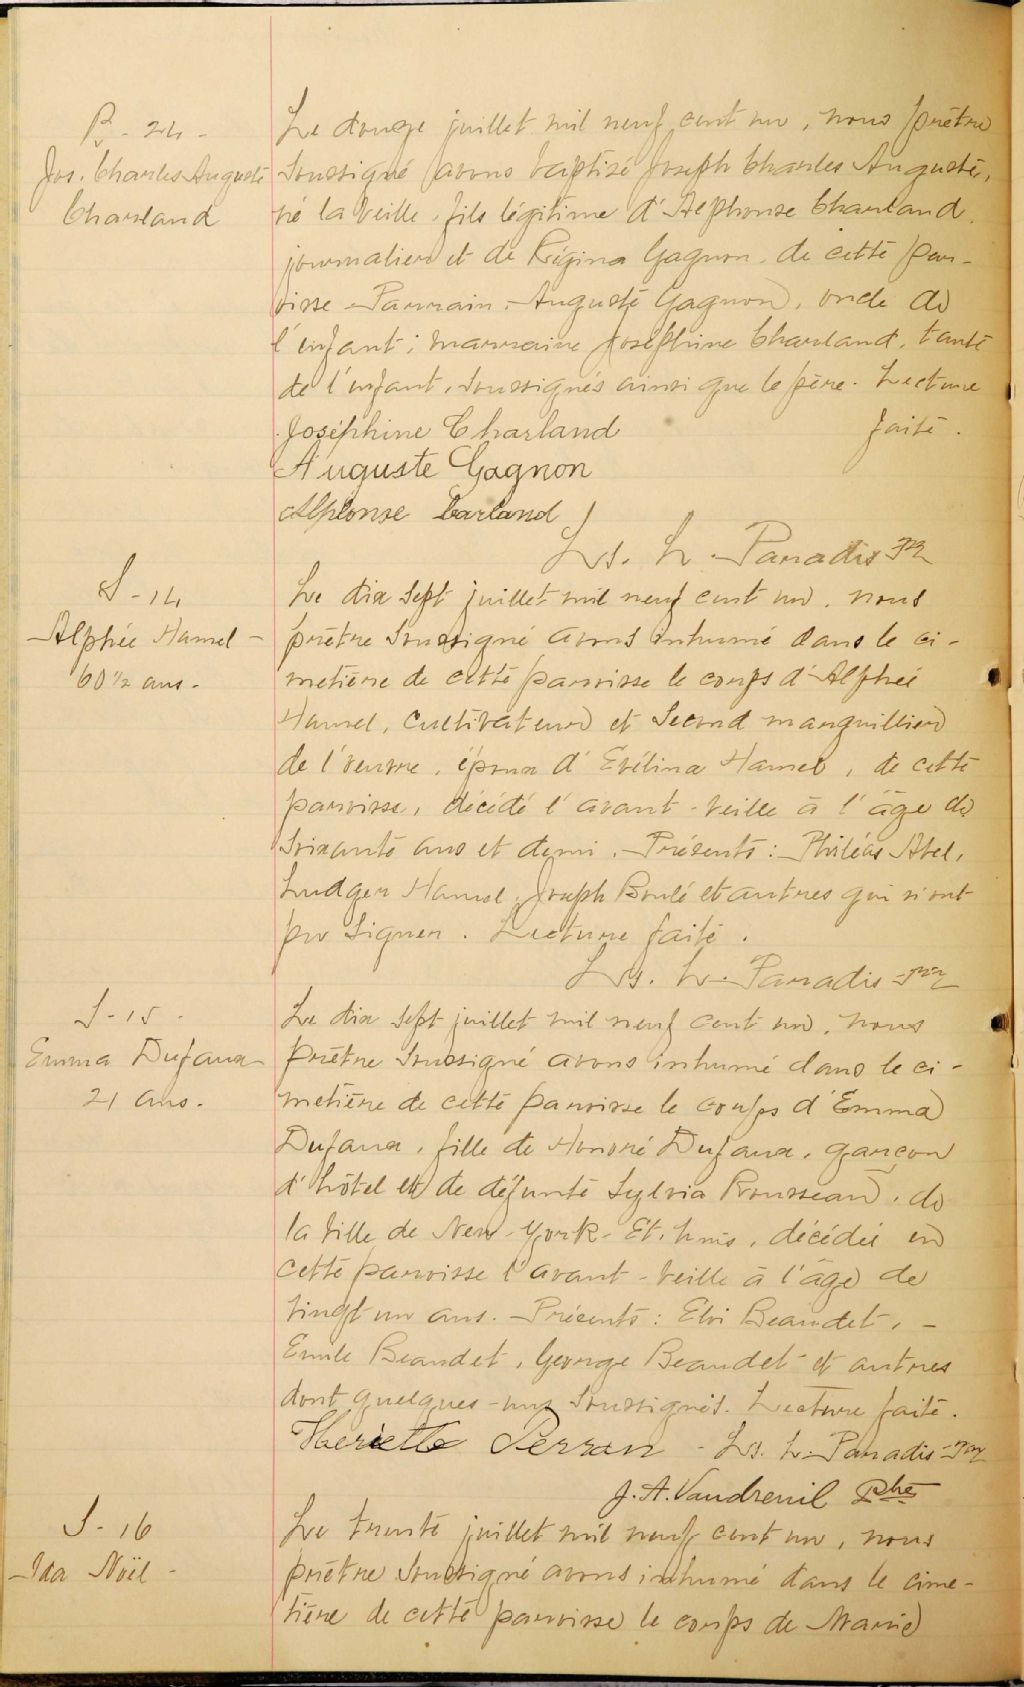 B - 24 -
Jos. Charles Auguste
Charland
Le douze juillet mil neuf cent un, nous prêtre
soussigné avons baptisé Joseph Charles Auguste,
né la veille, fils légitime d'Alphonse Charland,
journalier et de Régina Gagnon, de cette par-
oisse - Parrain, Auguste Gagnon, oncle de
l'enfant; marraine Joséphine Charland, tante
de l'enfant, soussignés ainsi que le père. Lecture
faite.
Joséphine Charland
Auguste Gagnon
Alphonse Carland
Ls. L. Paradis ptr
S - 14
Alphée Hamel -
60 1/2 ans -
Le dix sept juillet mil neuf cent un, nous
prêtre soussigné avons inhumé dans le ci-
metière de cette paroisse le corps d'Alphée
Hamel, cultivateur et second marguillier
de l'oeuvre, époux d'Evélina Hamel, de cette
paroisse, décédé l'avant-veille à l'âge de
soixante ans et demi. Présents: Philéas Abel,
Ludger Hamel, Joseph Boulé et autres qui n'ont
pu signer. Lecture faite.
Ls. L. Paradis ptr
S - 15 -
Emma Dufaux
21 ans -
Le dix sept juillet mil neuf cent un, nous
prêtre soussigné avons inhumé dans le ci-
metière de cette paroisse le corps d'Emma
Dufaux, fille de Honoré Dufaux, garçon
d'hôtel et de défunte Sylvia Rousseau, de
la ville de New-York - Et. Unis, décédée en
cette paroisse l'avant-veille à l'âge de
vingt un ans. - Présents: Eloi Beaudet, -
Emile Beaudet, George Beaudet et autres
dont quelques-uns soussignés. Lecture faite.
Ls. L. Paradis ptr
J. A. Vaudreuil Phe
S - 16
Ida Noël -
Le trente juillet mil neuf cent un, nous
prêtre soussigné avons inhumé dans le cime-
tière de cette paroisse le corps de Marie